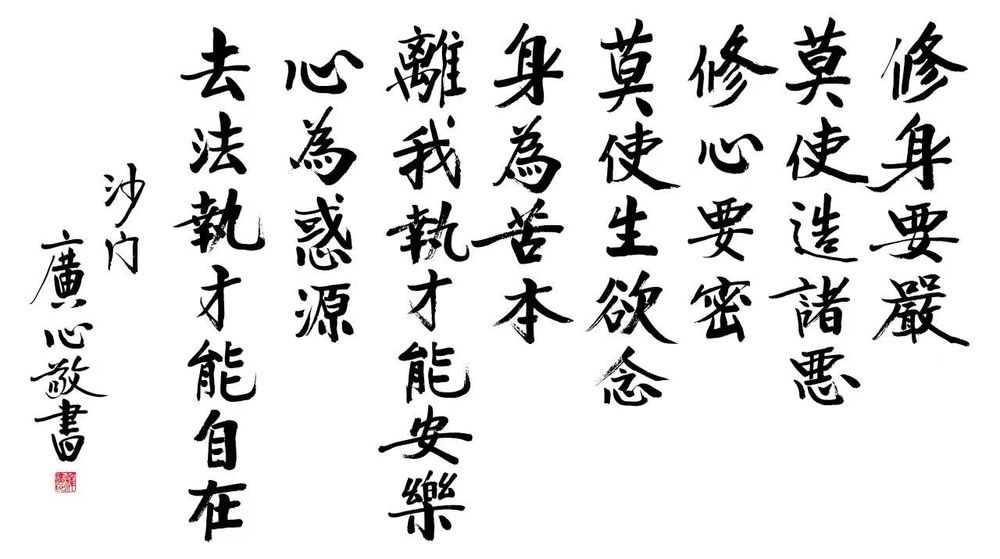 修身要嚴
莫使造諸惡
修心要密
莫使生欲念
身為苦本
離我執才能安樂
心為惑源
去法執才能自在
沙门
廣心敬書